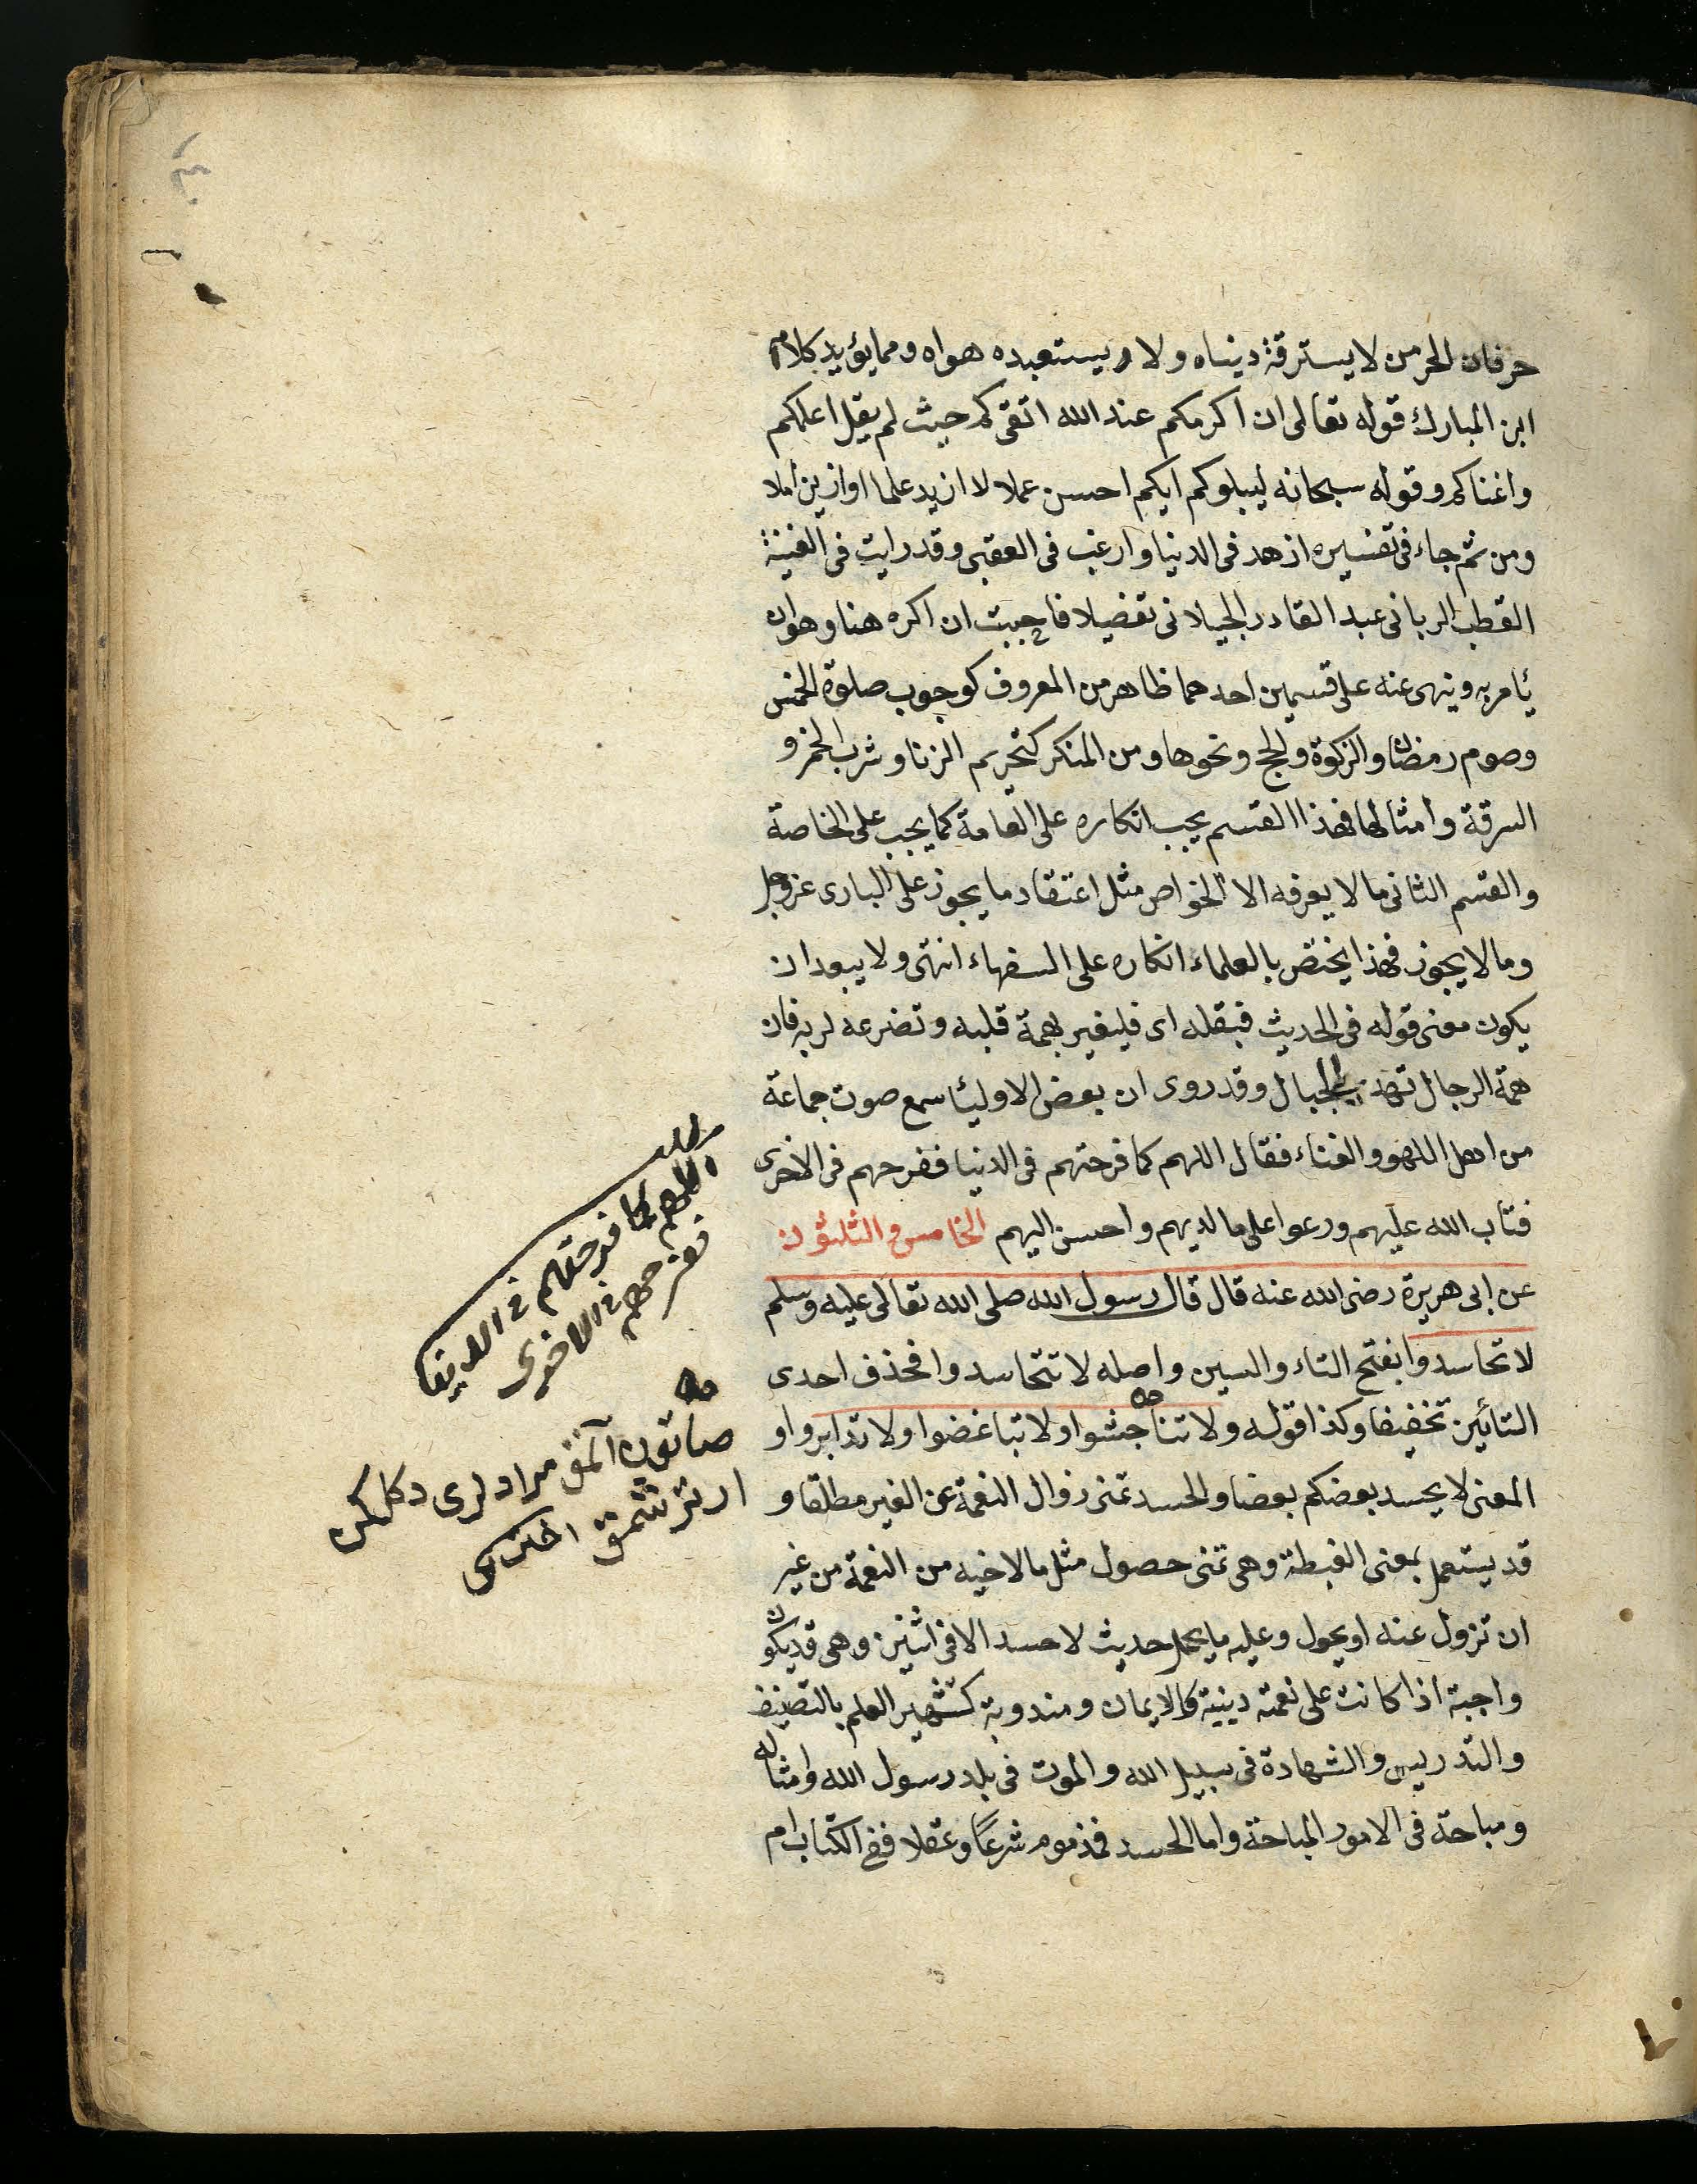 حر فان الحر من لا يسترقه دنياه ولا يستعبده هواه ومما يؤيد كلام
ابن المبارك قوله تعالى ان اكرمكم عند الله اتقىكم حيث لم يقل اعلمكم
واغناكم وقوله سبحانه ليبلوكم ايكم احسن عملا لا ازيد علما او ازين املا
ومن ثم جاء فى تفسيره ازهد فى الدنيا وارغب فى العقبى وقد رايت فى الغنية
القطب الربانى عبد القادر الجيلانى تفضيلا فاحببت ان اكره هنا وهو ان
يأمر به وينهى عنه على قسمين احدهما ظاهر من المعروف كوجوب صلوة الخمس
وصوم رمضان والزكوة والحج ونحوها ومن المنكر كتحريم الزنا وشرب الخمر و
السرقة وامثالها فهذا القسم يجب انكاره على العامة كما يجب على الخاصة
والقسم الثانى ما لا يعرفه الا الخواص مثل اعتقاد ما يجوز على البارى عز وجل
وما لا يجوز فهذا يختص بالعلماء انكاره على السفهاء انتهى ولا يبعد ان
يكون معنى قوله فى الحديث فبقلبه اى فليغير بهمة قلبه وتضرعه لربه فان
همة الرجال تهد الجبال وقد روى ان بعض الاوليأ سمع صوت جماعة
من اهل اللهو والغناء فقال اللهم كما فرحتهم فى الدنيا ففرحهم فى الاخرى
فتاب الله عليهم ورعوا على ما لديهم واحسن اليهم الخامس والثلثون
عن ابى هريرة رضى الله عنه قال قال رسول الله صلى الله تعالى عليه وسلم
لا تحاسدوا بفتح التاء والسين واصله لا تتحاسدوا فحذف احدى
التائين تخفيفا وكذا قوله ولا تناجشوا ولا تباغضوا ولا تدابروا و
المعنى لا يحسد بعضكم بعضا والحسد تمنى زوال النعمة عن الغير مطلقا و
قد يستعمل بمعنى الغبطة وهى تمنى حصول مثل ما لاخيه من النعمة من غير
ان تزول عنه او يحول وعليه ما يحمل حديث لا حسد الا فى اثنين وهى قد يكون
واجبة اذا كانت على نعمة دينية كالايمان ومندوبة كتشهير العلم بالتصنيف
والتدريس والشهادة فى سبيل الله والموت فى بلد رسول الله وامثاله
ومباحة فى الامور المباحة واما الحسد فمذموم شرعًا وعقلا ففى الكتاب ام
مطلب
اللهم كما فرحتهم فى الدنيا
ففرحهم فى الاخرى
صاتون آلمق مرادلرى دكل ايكن
ارتر